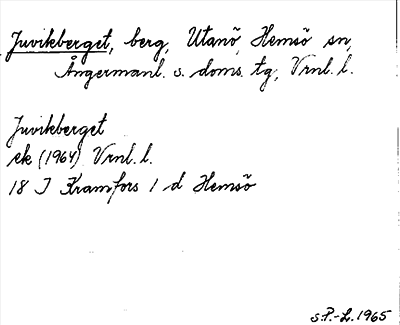 Juvikberget, berg, Utanö, Hemsö sn,
Ångermanl. s. doms. tg, Vrnl. l.
Juvikberget
ek (1964) Vrnl. l.
18 J Kramfors 1 d Hemsö
S.P.-L. 1965